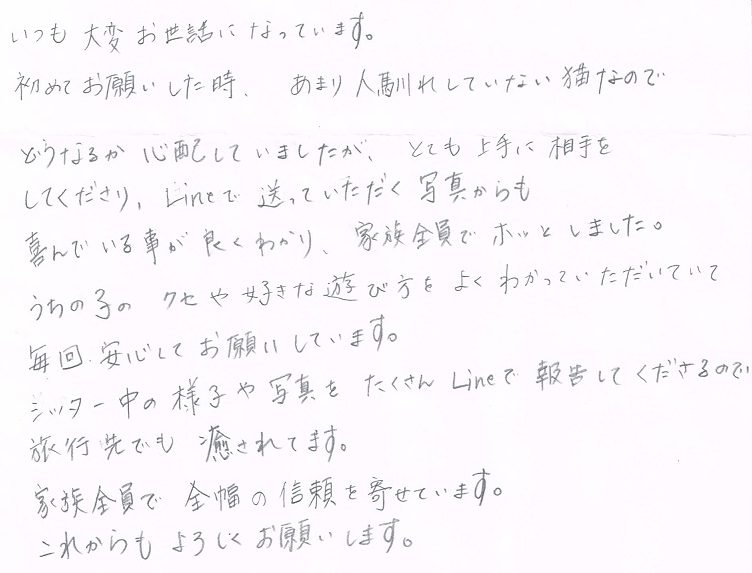 いつも 大変 お世話になっています。
初めてお願いした時、あまり人馴れしていない猫なので
どうなるか 心配していましたが、とても上手に 相手を
してくださり、Lineで 送っていただく 写真からも
喜んでいる事が 良くわかり、家族全員で ホッとしました。
うちの子の クセや好きな遊び方を よく わかっていただいていて
毎回、安心して お願いしています。
シッター中の 様子や 写真を たくさん Lineで 報告してくださるので
旅行先でも 癒されてます。
家族全員で 全幅の信頼を寄せています。
これからも よろしく お願いします。